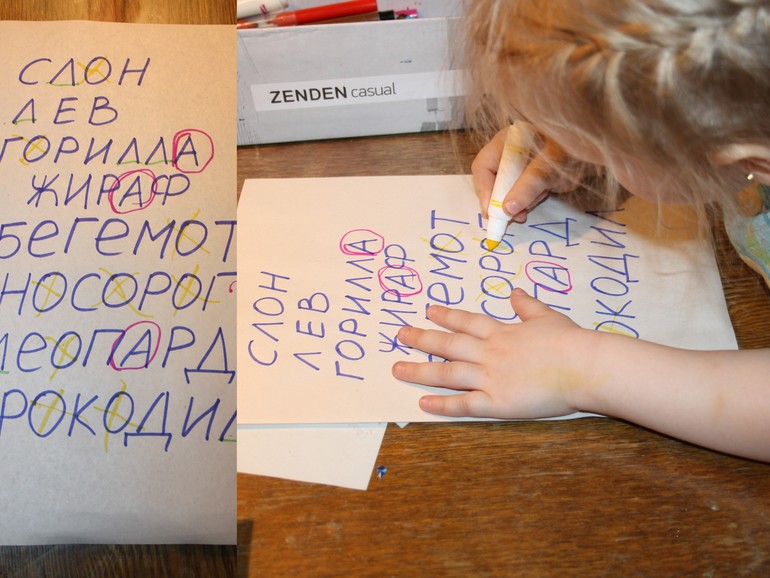 СЛОН
ЛЕВ
ГОРИЛЛА
ЖИРАФ
БЕГЕМОТ
НОСОРОГ
ЛЕОПАРД
РОКОДИЛ
ZENDEN casual
СЛОН
ЛЕВ
ГОРИЛЛА
ЖИРАФ
ГЕМОТ
СОРОГ
ПАРД
ОКОДИЛ